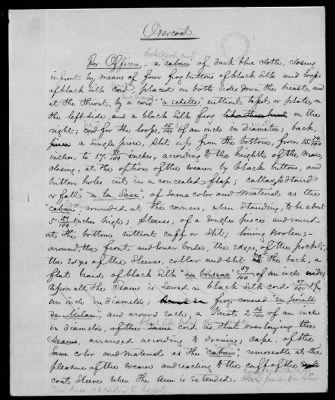 Overcoat
For Officers, - a "caban" of dark blue cloth, closing
in front by means of four frog buttons of black silk and loops
of black silk cord, placed on both sides down the breast, and
at the throat, by a cord "à echelle," without tassel or plate, on
the left side, and a black silk frog on the
right; cord for the loops, /100 of an inch in diameter; back,
a single piece, slit up, from the bottom, from 15
inches, to 17 inches, according to the height of the man,
closing, at the option of the wearer by black buttons, and
button holes cut in a concealed flap; collar, standard
or falls of same color and material as the
"caban", rounded at the corners, when standing, to be about
5 inches high; sleeves, of a single piece and round
at the bottom without cuff or slit; lining woolen;
around the front and lower border, the edges of the pockets,
the edges of the sleeves, collar and slit the back, a
flat braid of black silk of an inch
upon all the seams is sewed a black silk cord of
an inch in diameter,
and around each, a of an inch
in diameter, of the cord is that overlaying the
seams, arranged according to drawing; cape, of the
same color and material as the "cabaan", removable at the
pleasure of the wearer and reaching to the cuff of the
coat sleeves when the arm is extended.